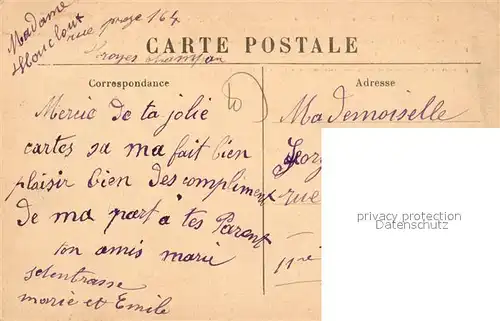 Madame
rue
164
CARTE POSTALE
Correspondance
Adresse
Mercie de ta jolie
cartes sa ma fait bien
plaisir bien des compliment
de ma part a tes Parent
ton amis marie
marie et Emile
Mademoiselle
rue
privacy protection
Datenschutz